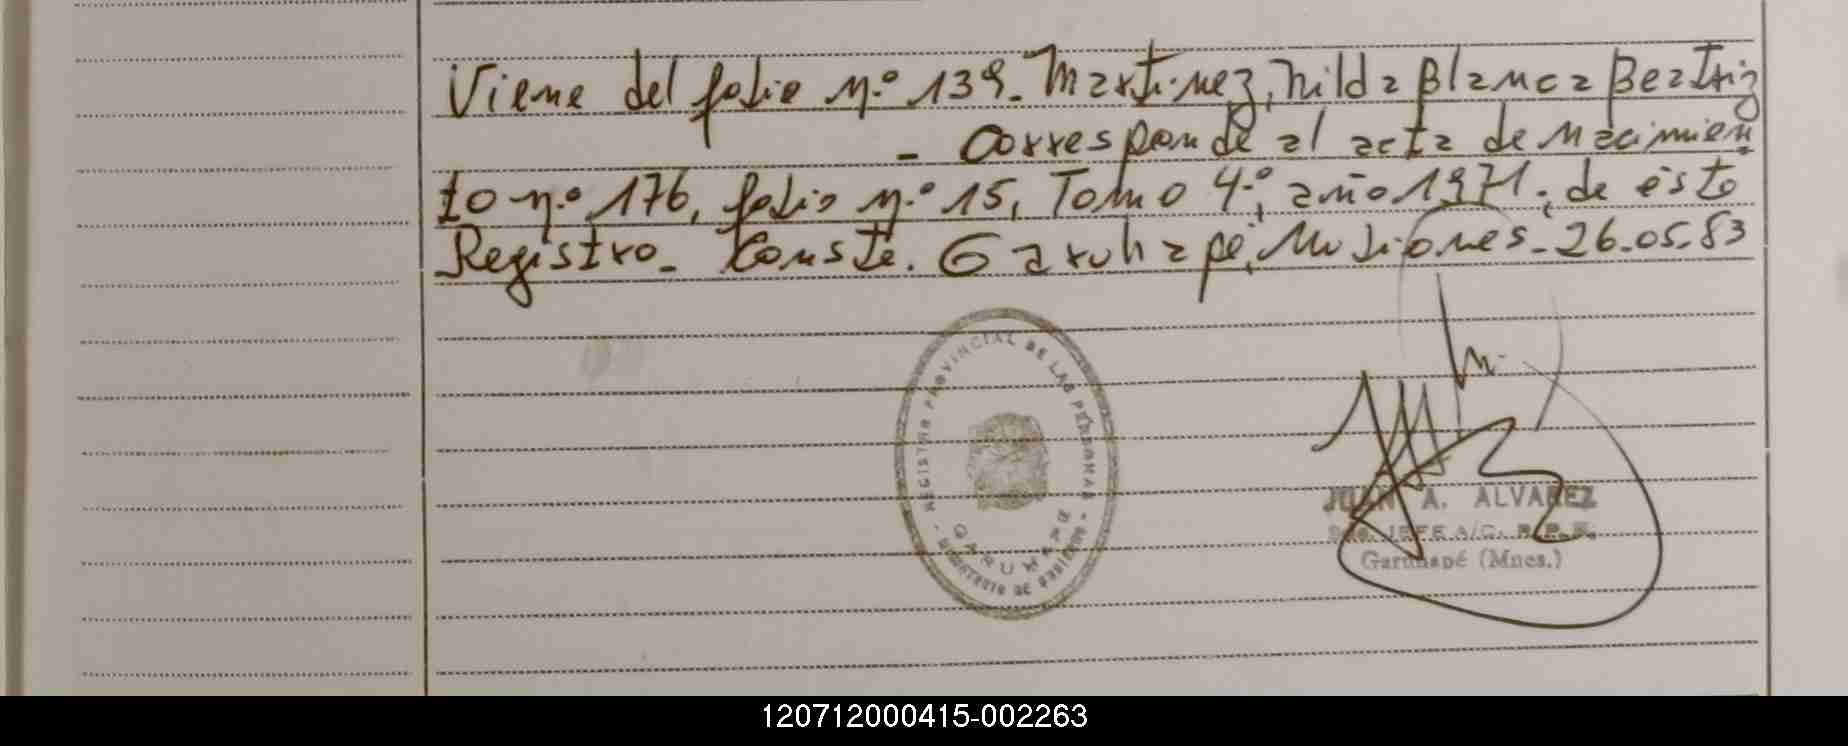 Viene del folio n.º 139_ Martinez, hilda Blanca Beatriz
_ Corresponde al acta de nacimien
to n.º 176, folio n.º 15, Tomo 4.º, año 1971, de ésto
Registro_ Conste. Garuhapé, Misiones_ 26.05.83
REGISTRO PROVINCIAL DE LAS PERSONAS
GARUHAPE
JUAN A. ALVAREZ
JEFE A/C. R.P.P.
Garuhapé (Mnes.)
120712000415-002263